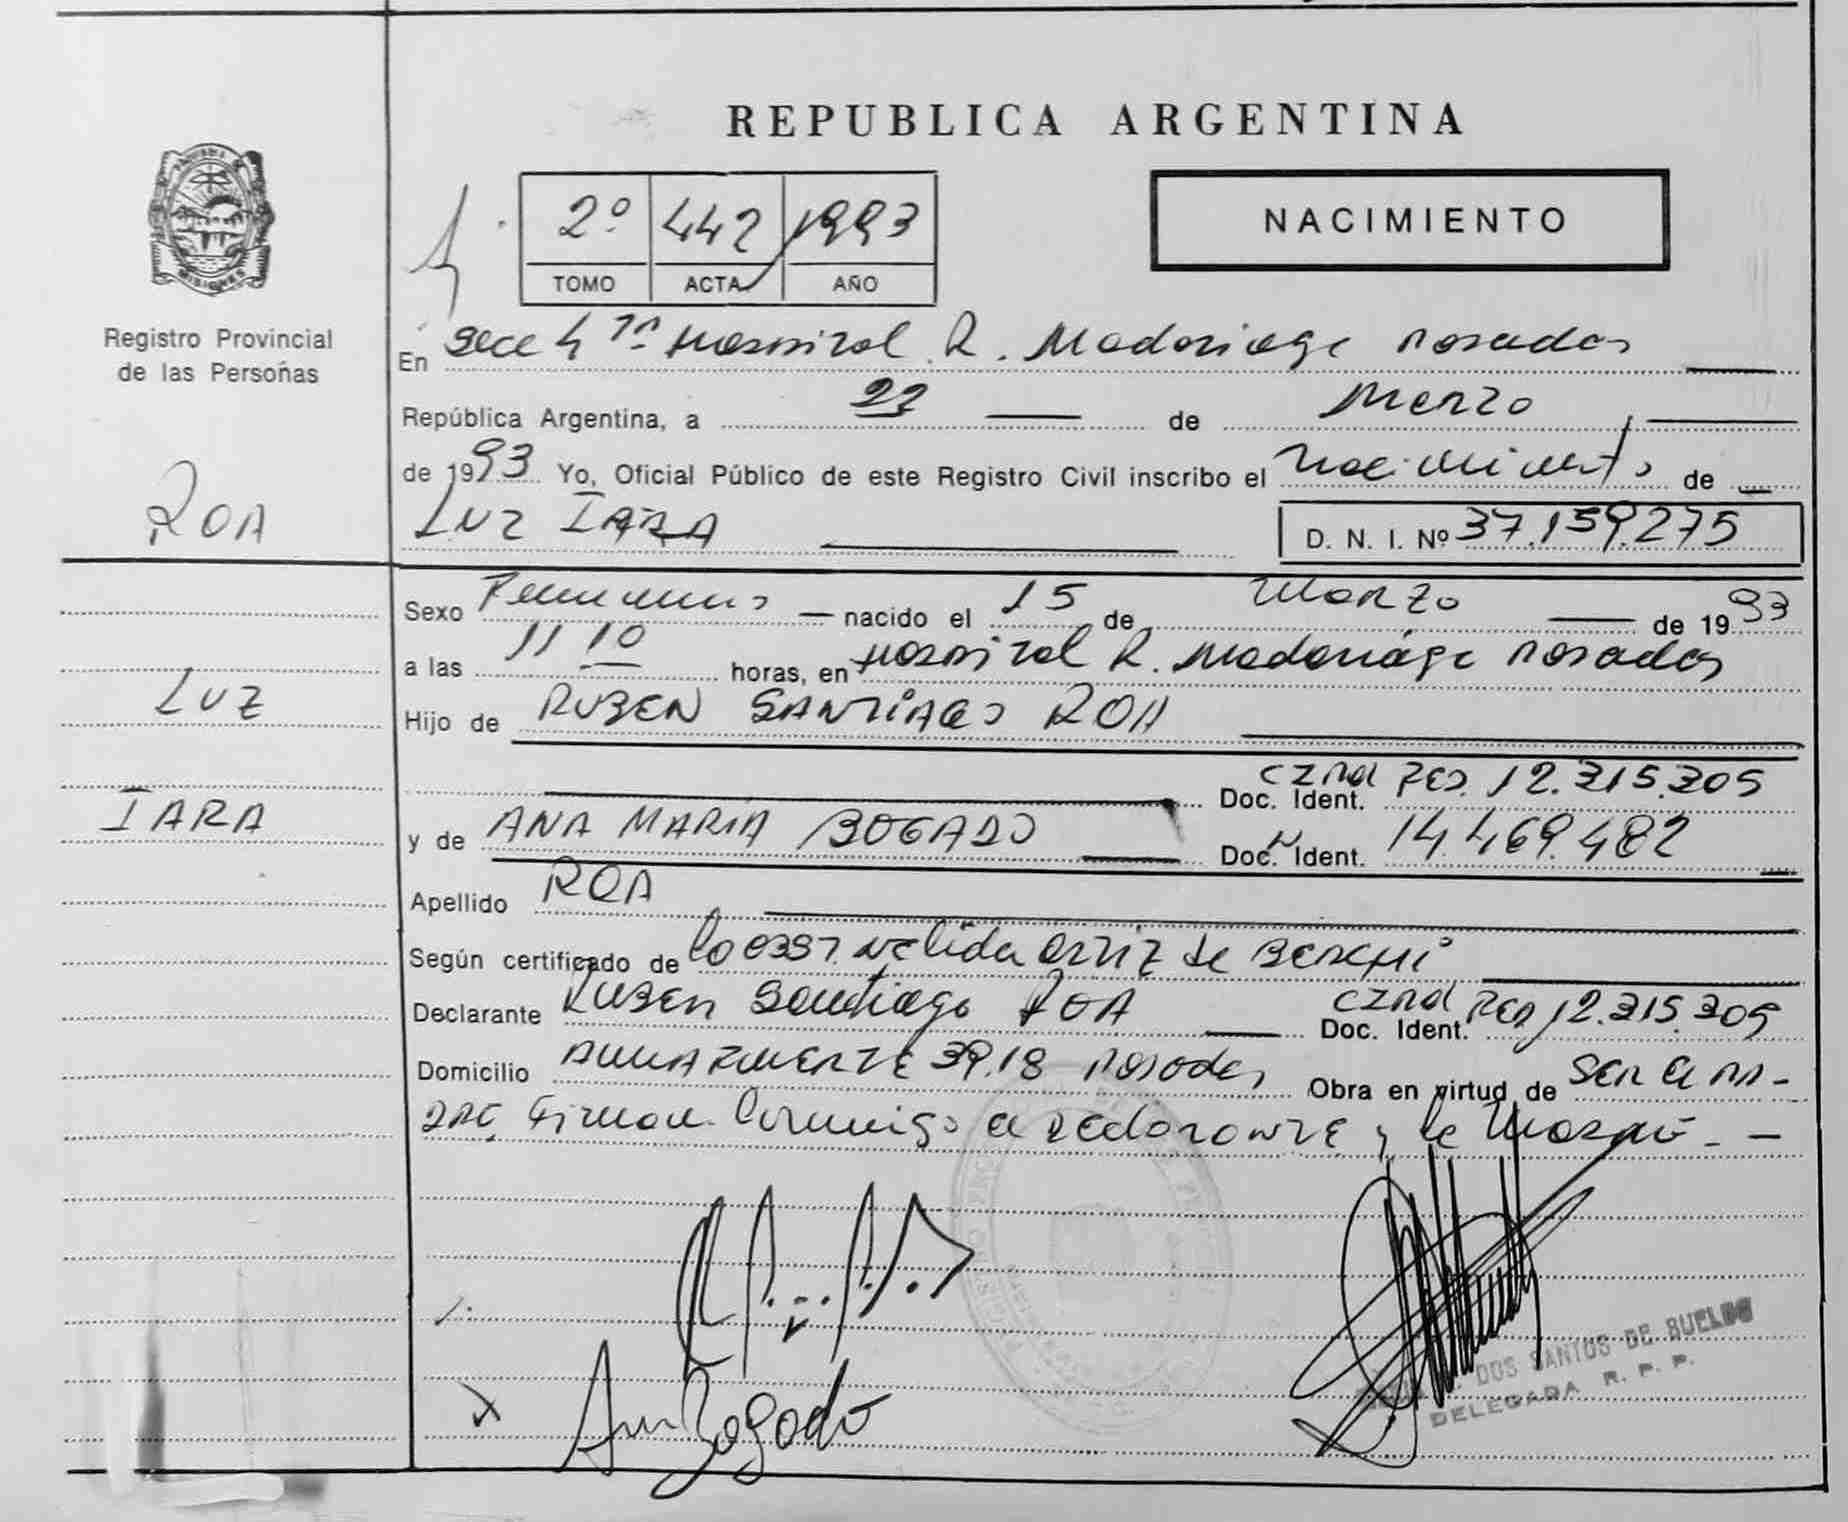 REPUBLICA ARGENTINA
MISIONES
Registro Provincial
de las Personas
2º 442 1993
TOMO ACTA AÑO
NACIMIENTO
En Secc 4 Hospital R. Madariaga Posadas
República Argentina, a 22 de Marzo
de 1993 Yo, Oficial Público de este Registro Civil inscribo el nacimiento de
ROA
LUZ IARA
D. N. I. Nº 37.159.275
Sexo Femenino nacido el 15 de Marzo de 1993
a las 11 10 horas, en Hospital R. Madariaga Posadas
LUZ
Hijo de RUBEN SANTIAGO ROA
Doc. Ident. 12.315.305
IARA
y de ANA MARIA BOGADO Doc. Ident. 14.469.482
Apellido ROA
Según certificado de Nelida Ortiz de
Declarante Ruben Santiago ROA Doc. Ident. 12.315.305
Domicilio 3918 Posadas Obra en virtud de ser el pa-
dre Firman conmigo el declarante y la
Ana Bogado
DOS SANTOS DE BUELDO
DELEGADA R. P. P.